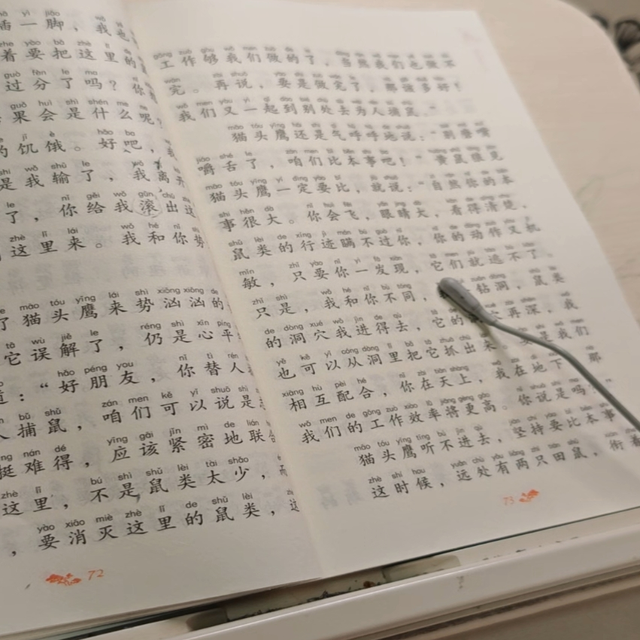 插一脚、我
着要把这里的
过分了吗？你
果会是什么呢
的饥饿。好吧，
是我输了，我离
了，你给我滚出这
这里来。我和你势
了猫头鹰来势汹汹的
它误解了，仍是心平
道：“好朋友，你替人
人捕鼠，咱们可以说是
挺难得，应该紧密地联
这里，不是鼠类太少，
，要消灭这里的鼠类，这
72
工作够我们做的了，当然我们也做不
完。再说，要是做完了，那该多好！
我们又一起到别处去为人滴鼠
猫头鹰还是气呼呼地说：“别磨嘴
嚼舌了，咱们比本事吧！”黄鼠狼见
猫头鹰一定要比，就说：“自然你的本
事很大。你会飞，眼睛大，看得清楚，
鼠类的行迹瞒不过你，你的动作又机
敏，只要你一发现，它们就逃不了。
只是，我和你不同，钻洞，鼠类
的洞穴我进得去，它的再深，我
也可以从洞里把它抓出我们
相互配合，你在天上，我在地下，那
我们的工作效率将更高，你说是吗？”
猫头鹰听不进去，坚持要比本事
这时候，远处有两只田鼠，
73